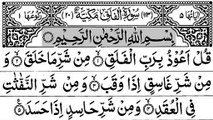 اٰیاتُهَا ٥ (١١٣) سُوْرَةُ الْفَلَقِ مَكِّيَّةٌ (٢٠) رُكُوْعُهَا ١
بِسْمِ اللّٰهِ الرَّحْمٰنِ الرَّحِيْمِ
قُلْ اَعُوْذُ بِرَبِّ الْفَلَقِ ۙ١ مِنْ شَرِّ مَا خَلَقَ ۙ٢ وَ
مِنْ شَرِّ غَاسِقٍ اِذَا وَقَبَ ۙ٣ وَمِنْ شَرِّ النَّفّٰثٰتِ
فِي الْعُقَدِ ۙ٤ وَمِنْ شَرِّ حَاسِدٍ اِذَا حَسَدَ ٥